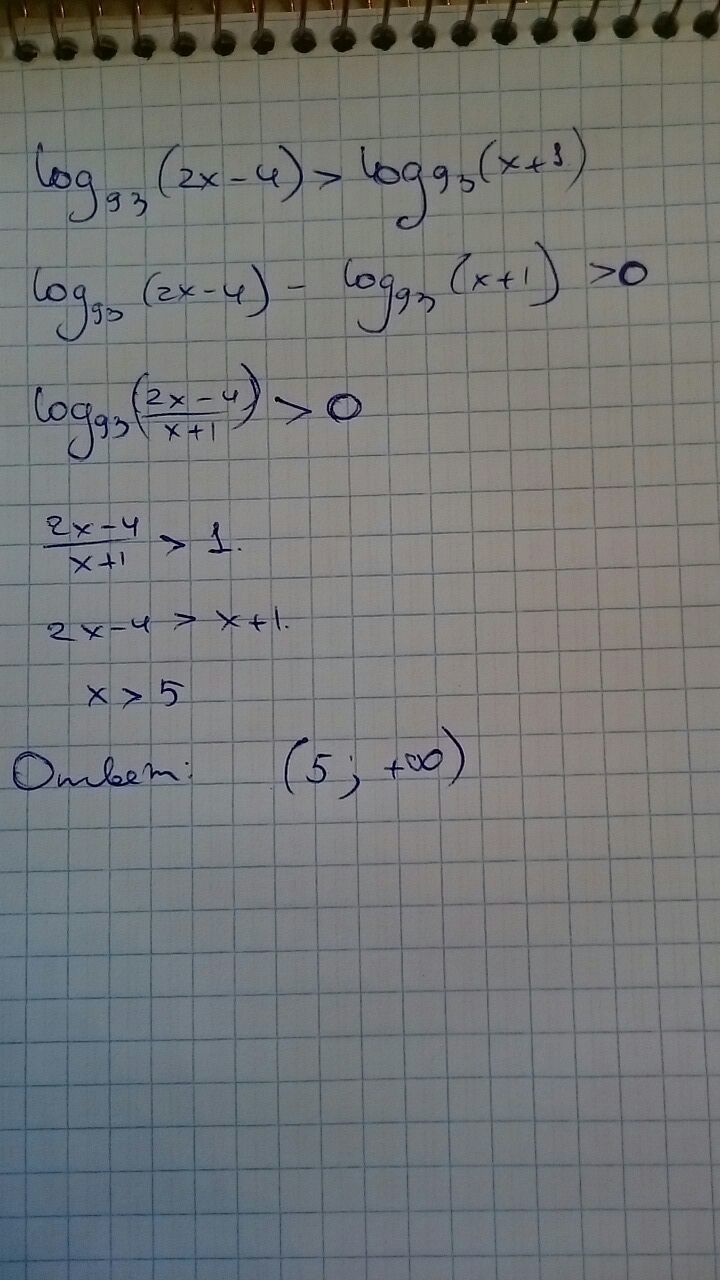 log₉₃(2x-4) > log₉₃(x+1)
log₉₃(2x-4) - log₉₃(x+1) > 0
log₉₃((2x-4)/(x+1)) > 0
(2x-4)/(x+1) > 1.
2x-4 > x+1.
x > 5
Ответ: (5; +∞)